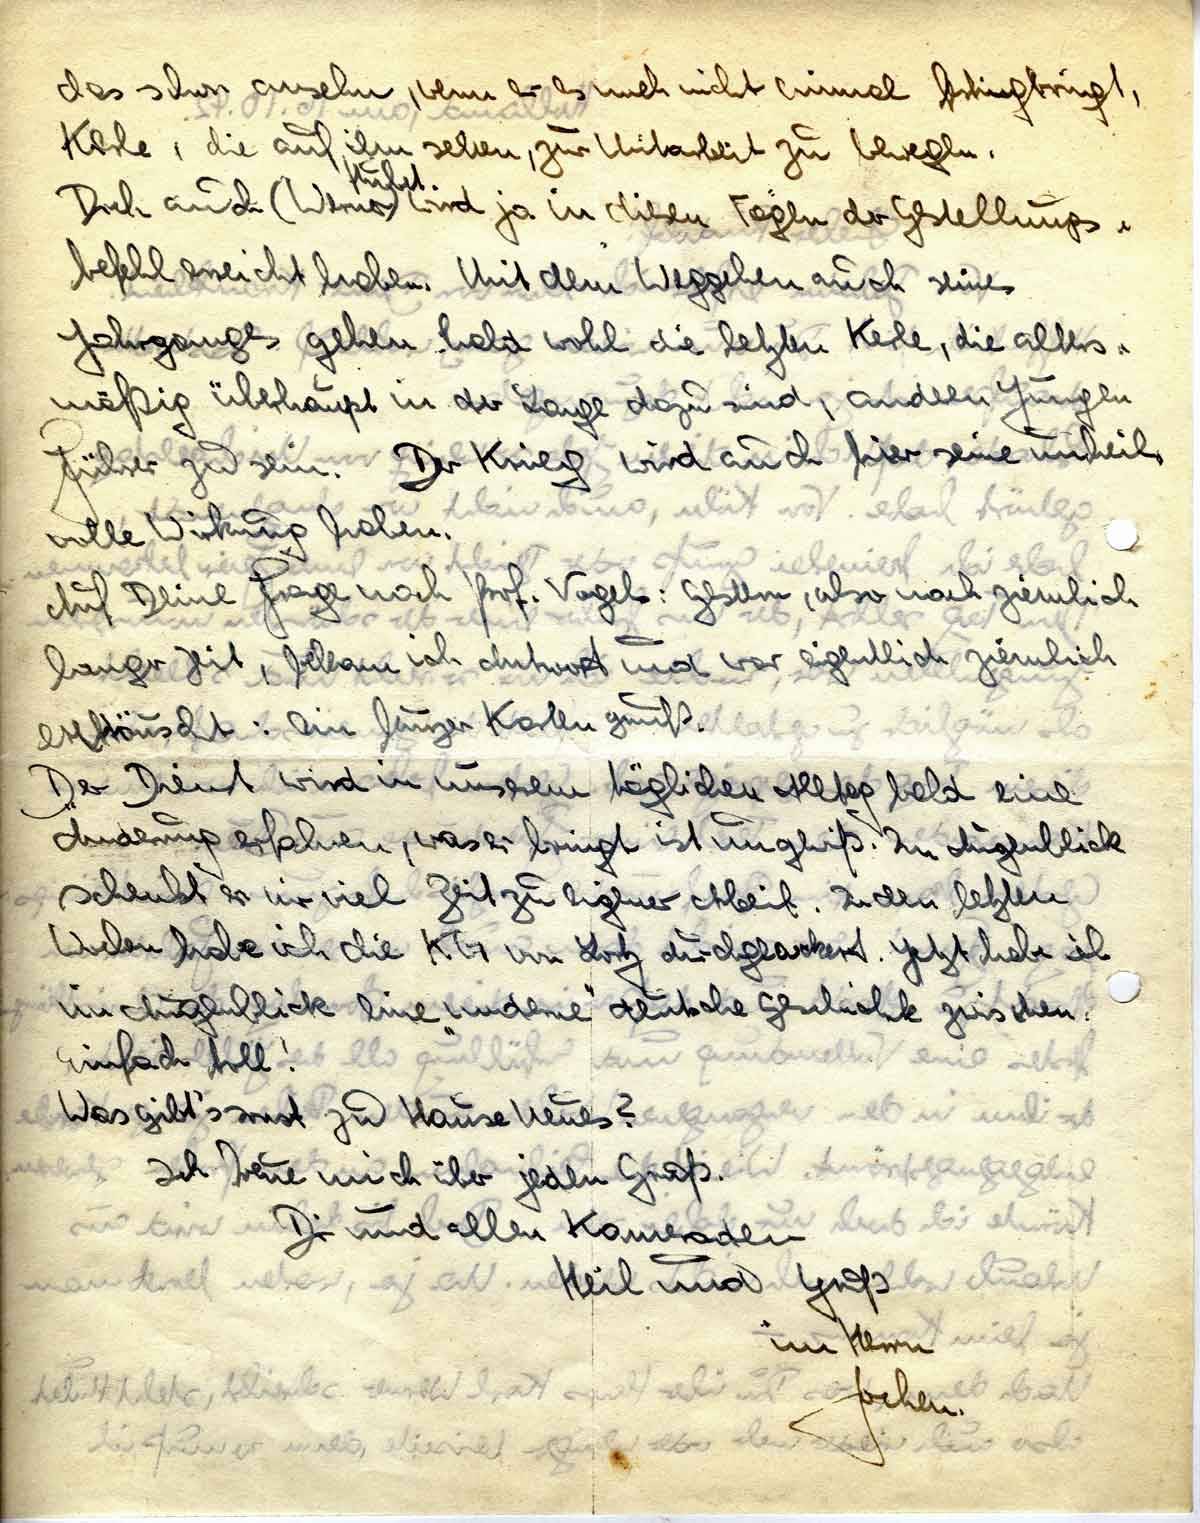 das schon ansehn, wenn er es noch nicht einmal fertigbringt,
Kerle, die auf ihn sehen, zur Mitarbeit zu bewegen.
Doch auch (Werner) Hubert wird ja in diesen Tagen der Gestellungs-
befehl erreicht haben. Mit dem Weggehen auch seines
Jahrganges gehen bald wohl die letzten Kerle, die alters-
mäßig überhaupt in der Lage dazu sind, anderen Jungen
Führer zu sein. Der Krieg wird auch hier seine unheil-
volle Wirkung haben.
Auf Deine Frage nach Prof. Vogels: Gestern, also nach ziemlich
langer Zeit, bekam ich Antwort und war eigentlich ziemlich
enttäuscht: ein kurzer Kartengruß.
Der Dienst wird in unserem täglichen Alltag bald eine
Änderung erfahren, was er bringt ist ungewiß. Im Augenblick
schenkt er mir viel Zeit zu eigner Arbeit. In den letzten
Wochen habe ich die KG von Lortz durchgeackert. Jetzt habe ich
im Augenblick eine „moderne" deutsche Geschichte zwischen.
Einfach toll!
Was gibt's sonst zu Hause Neues?
Ich freue mich über jeden Gruß.
Dir und allen Kameraden
Heil und Gruß
im Herrn
Jochen.